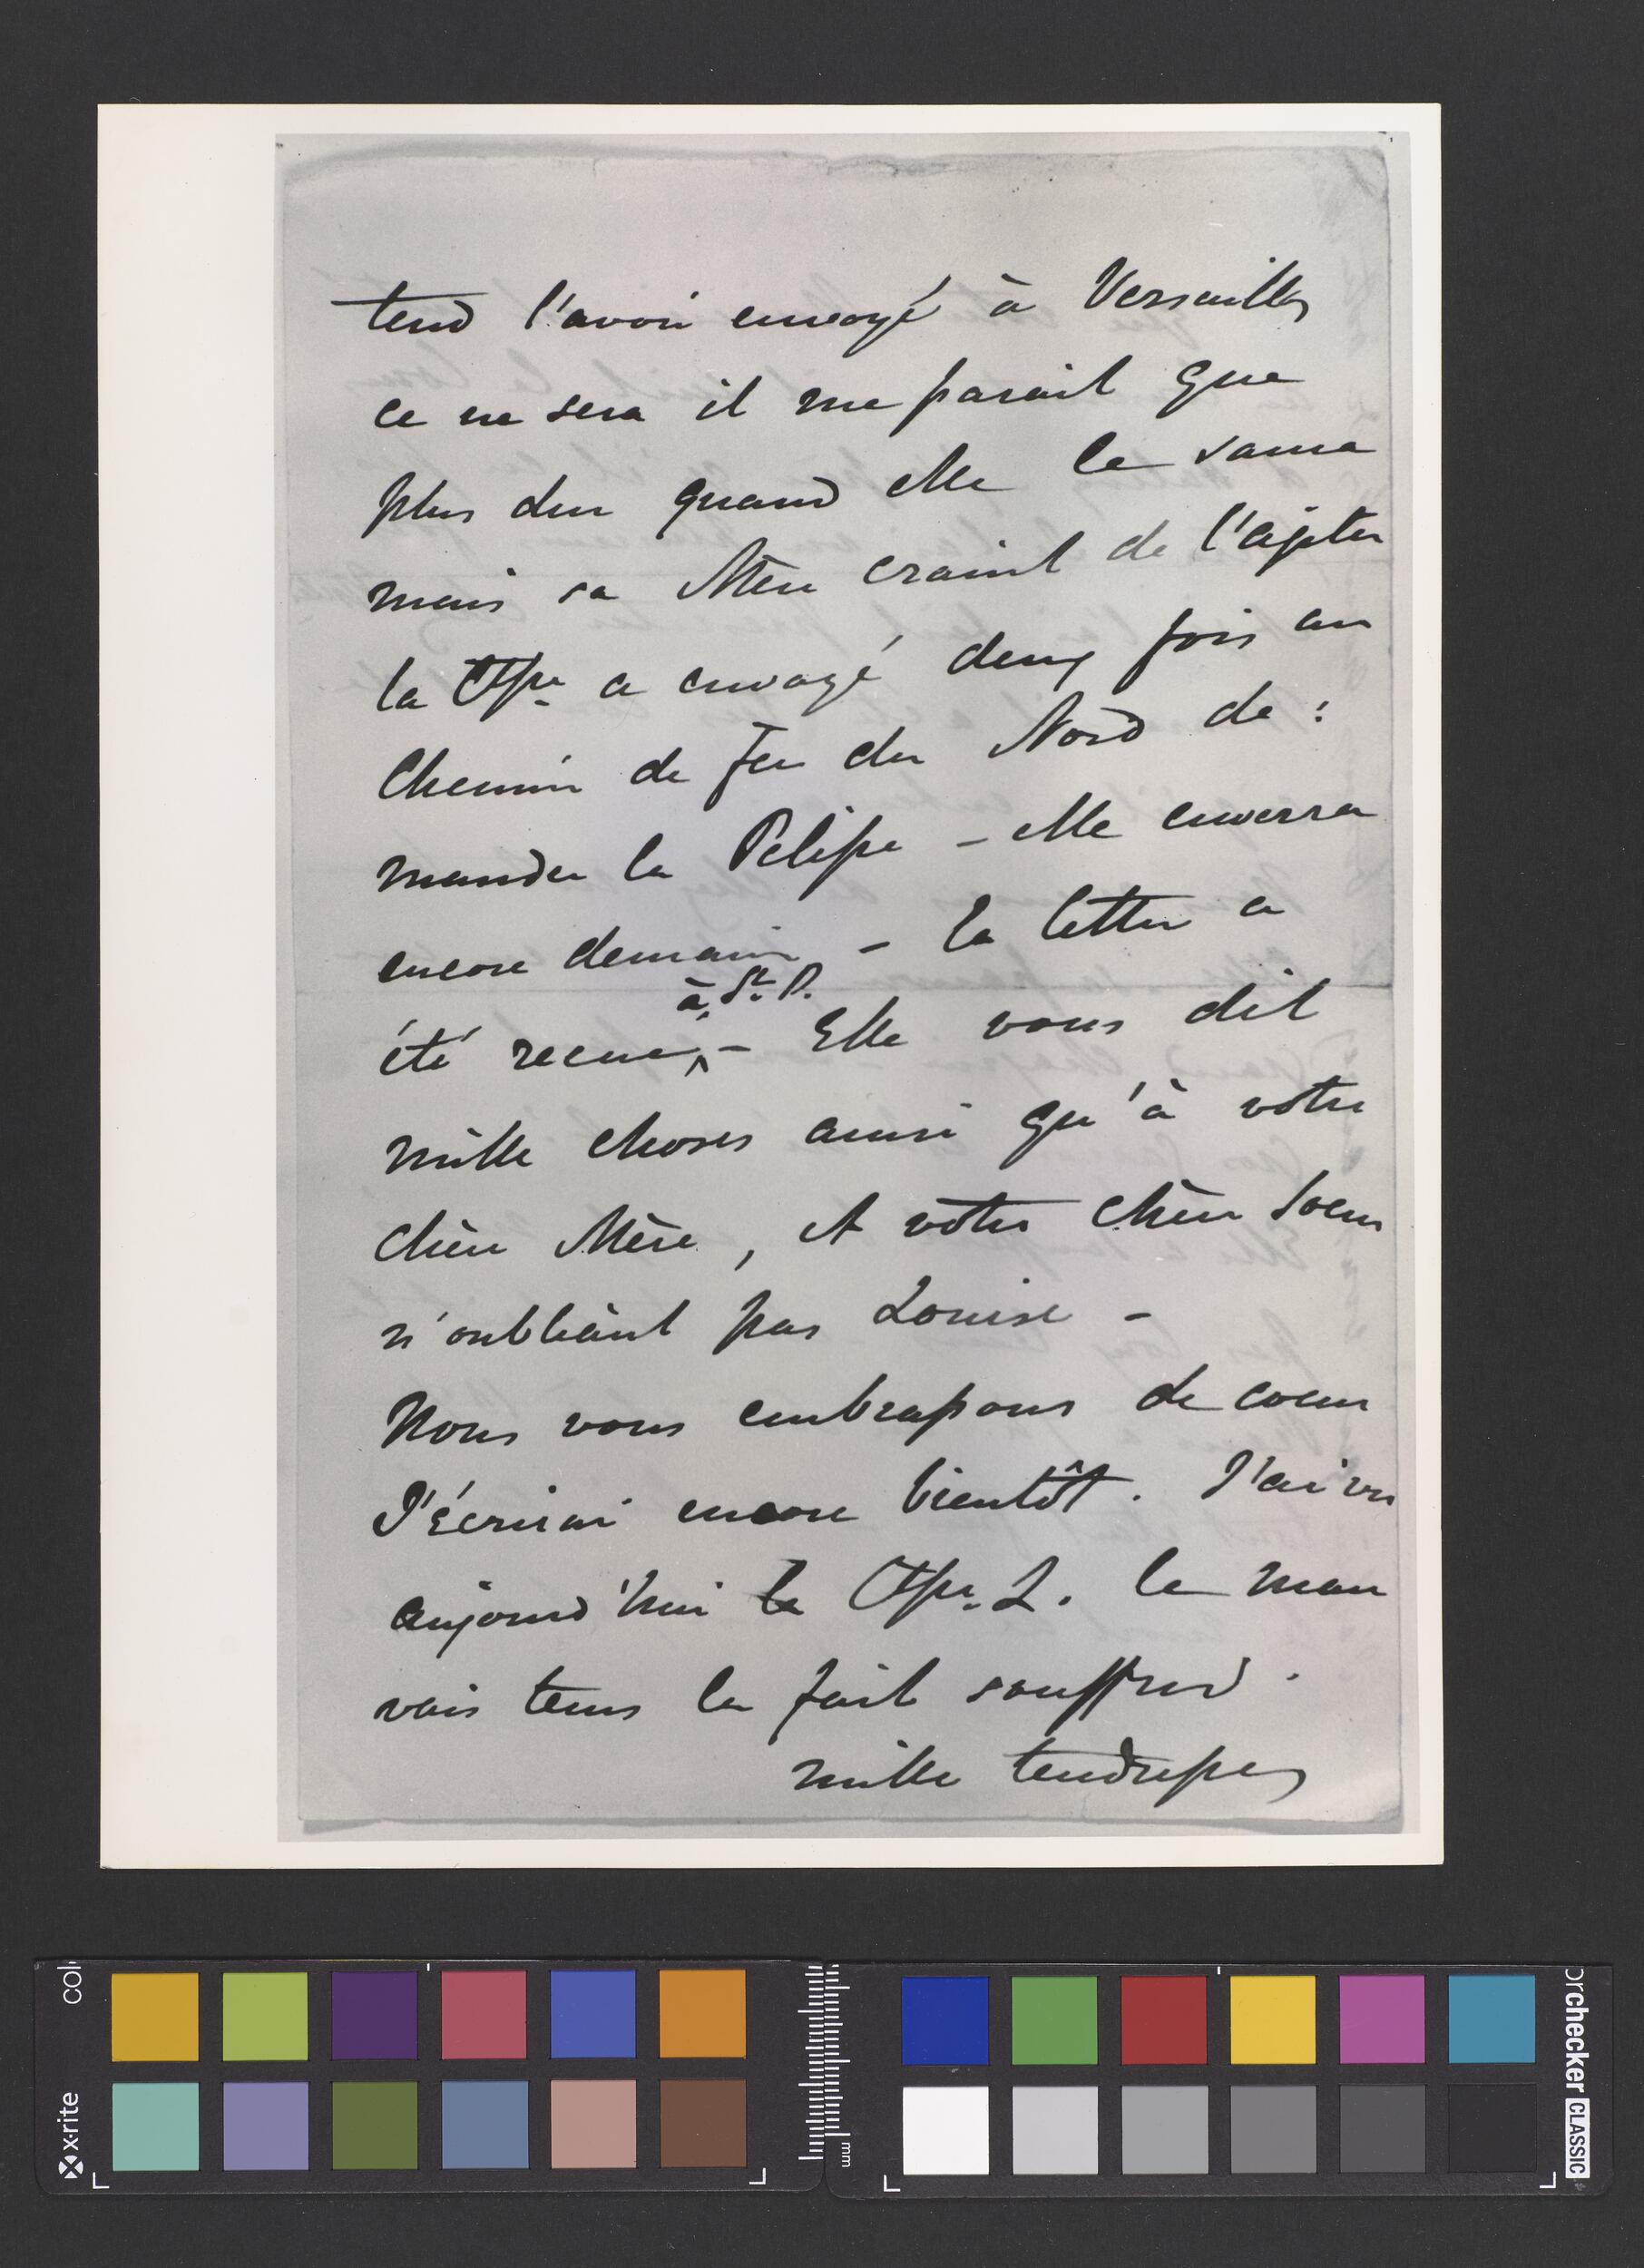 tend l'avoir envoyé à Versailles
ce ne sera il me parait que
plus dur quand elle le saura
mais sa Mère craint de l'agiter
la Ctsse a envoyé deux fois au
Chemin de Fer du Nord de:
mander la Pelisse – elle enverra
encore demain – la lettre a
à St. P.
été recue, – Elle vous dit
mille choses ainsi qu'à votre
chère Mère, et votre chère Soeur
n'oubliant pas Louise –
Nous vous embrassons de coeur
J'écrirai encore bientôt. J'ai vu
aujourd'hui la Ctsse. L. le mau
vais tems la fait souffrir.
mille tendresses
x-rite
colorchecker CLASSIC
mm